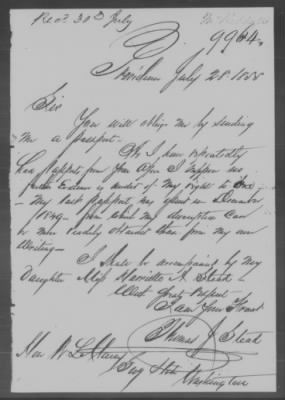 Rec'd 30th July
9964.
Providence July 28. 1855
Sir
You will oblige me by sending
Me a Passport—
As I have repeatedly
had Passports from your Office I suppose no
further Evidence is needed of my right to One
— My last Passport was issued in December
1849— from which my description can
be more readily obtained than from my own
Writing—
I shall be accompanied by My
Daughter Miss Harriette A. Stead—
With great Respect
I am Your Servant
Thomas J Stead
Hon W L Marcy
Secy State
Washington